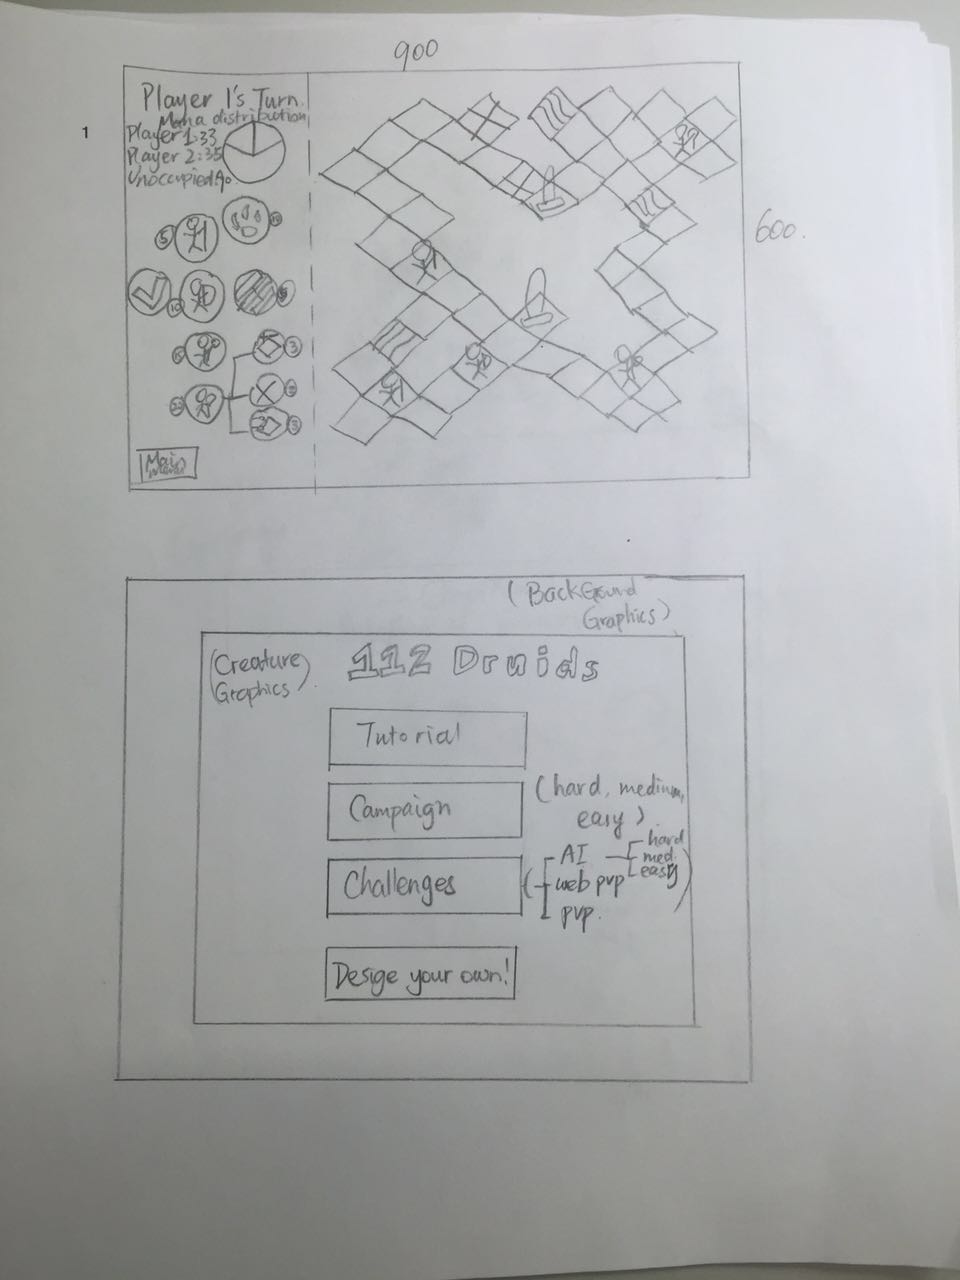 900
1
Player 1's Turn.
Mana distribution
Player 1:33
Player 2:35
Unoccupied
5
10
3
Main
600.
(Background
Graphics)
(Creature
Graphics)
112 Druids
Tutorial
Campaign
(hard, medium,
easy)
Challenges
AI
hard
med.
easy
web pvp
pvp.
Desige your own!